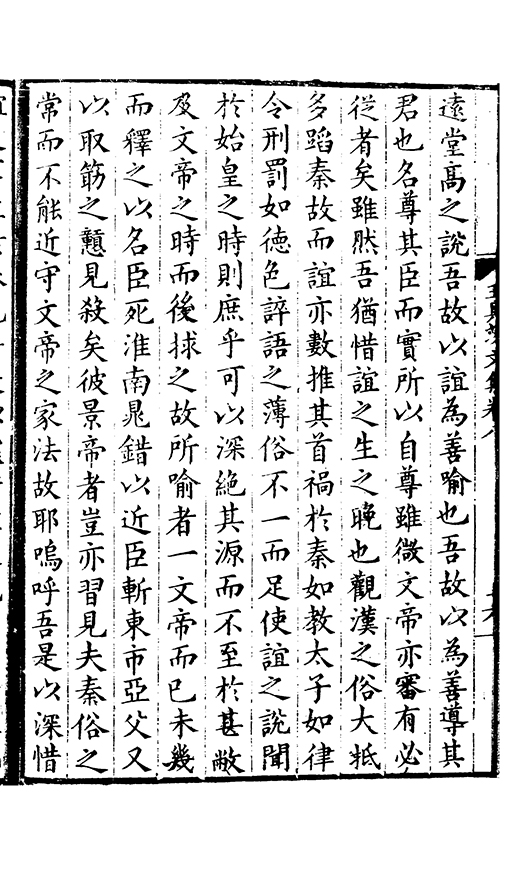 遠堂高之說吾故以誼為善喻也吾故以為善導其
君也名尊其臣而實所以自尊雖微文帝亦審有必
從者矣雖然吾猶惜誼之生之晚也觀漢之俗大抵
多蹈秦故而誼亦數推其首禍於秦如教太子如律
令刑罰如德色誶語之薄俗不一而足使誼之說聞
於始皇之時則庶乎可以深絕其源而不至於甚敝
及文帝之時而後捄之故所喻者一文帝而已未幾
而釋之以名臣死淮南鼂錯以近臣斬東市亞父又
以取筯之戇見殺矣彼景帝者豈亦習見夫秦俗之
常而不能近守文帝之家法故耶嗚呼吾是以深惜